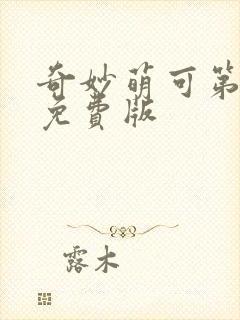 奇妙萌可第
免费版
露木